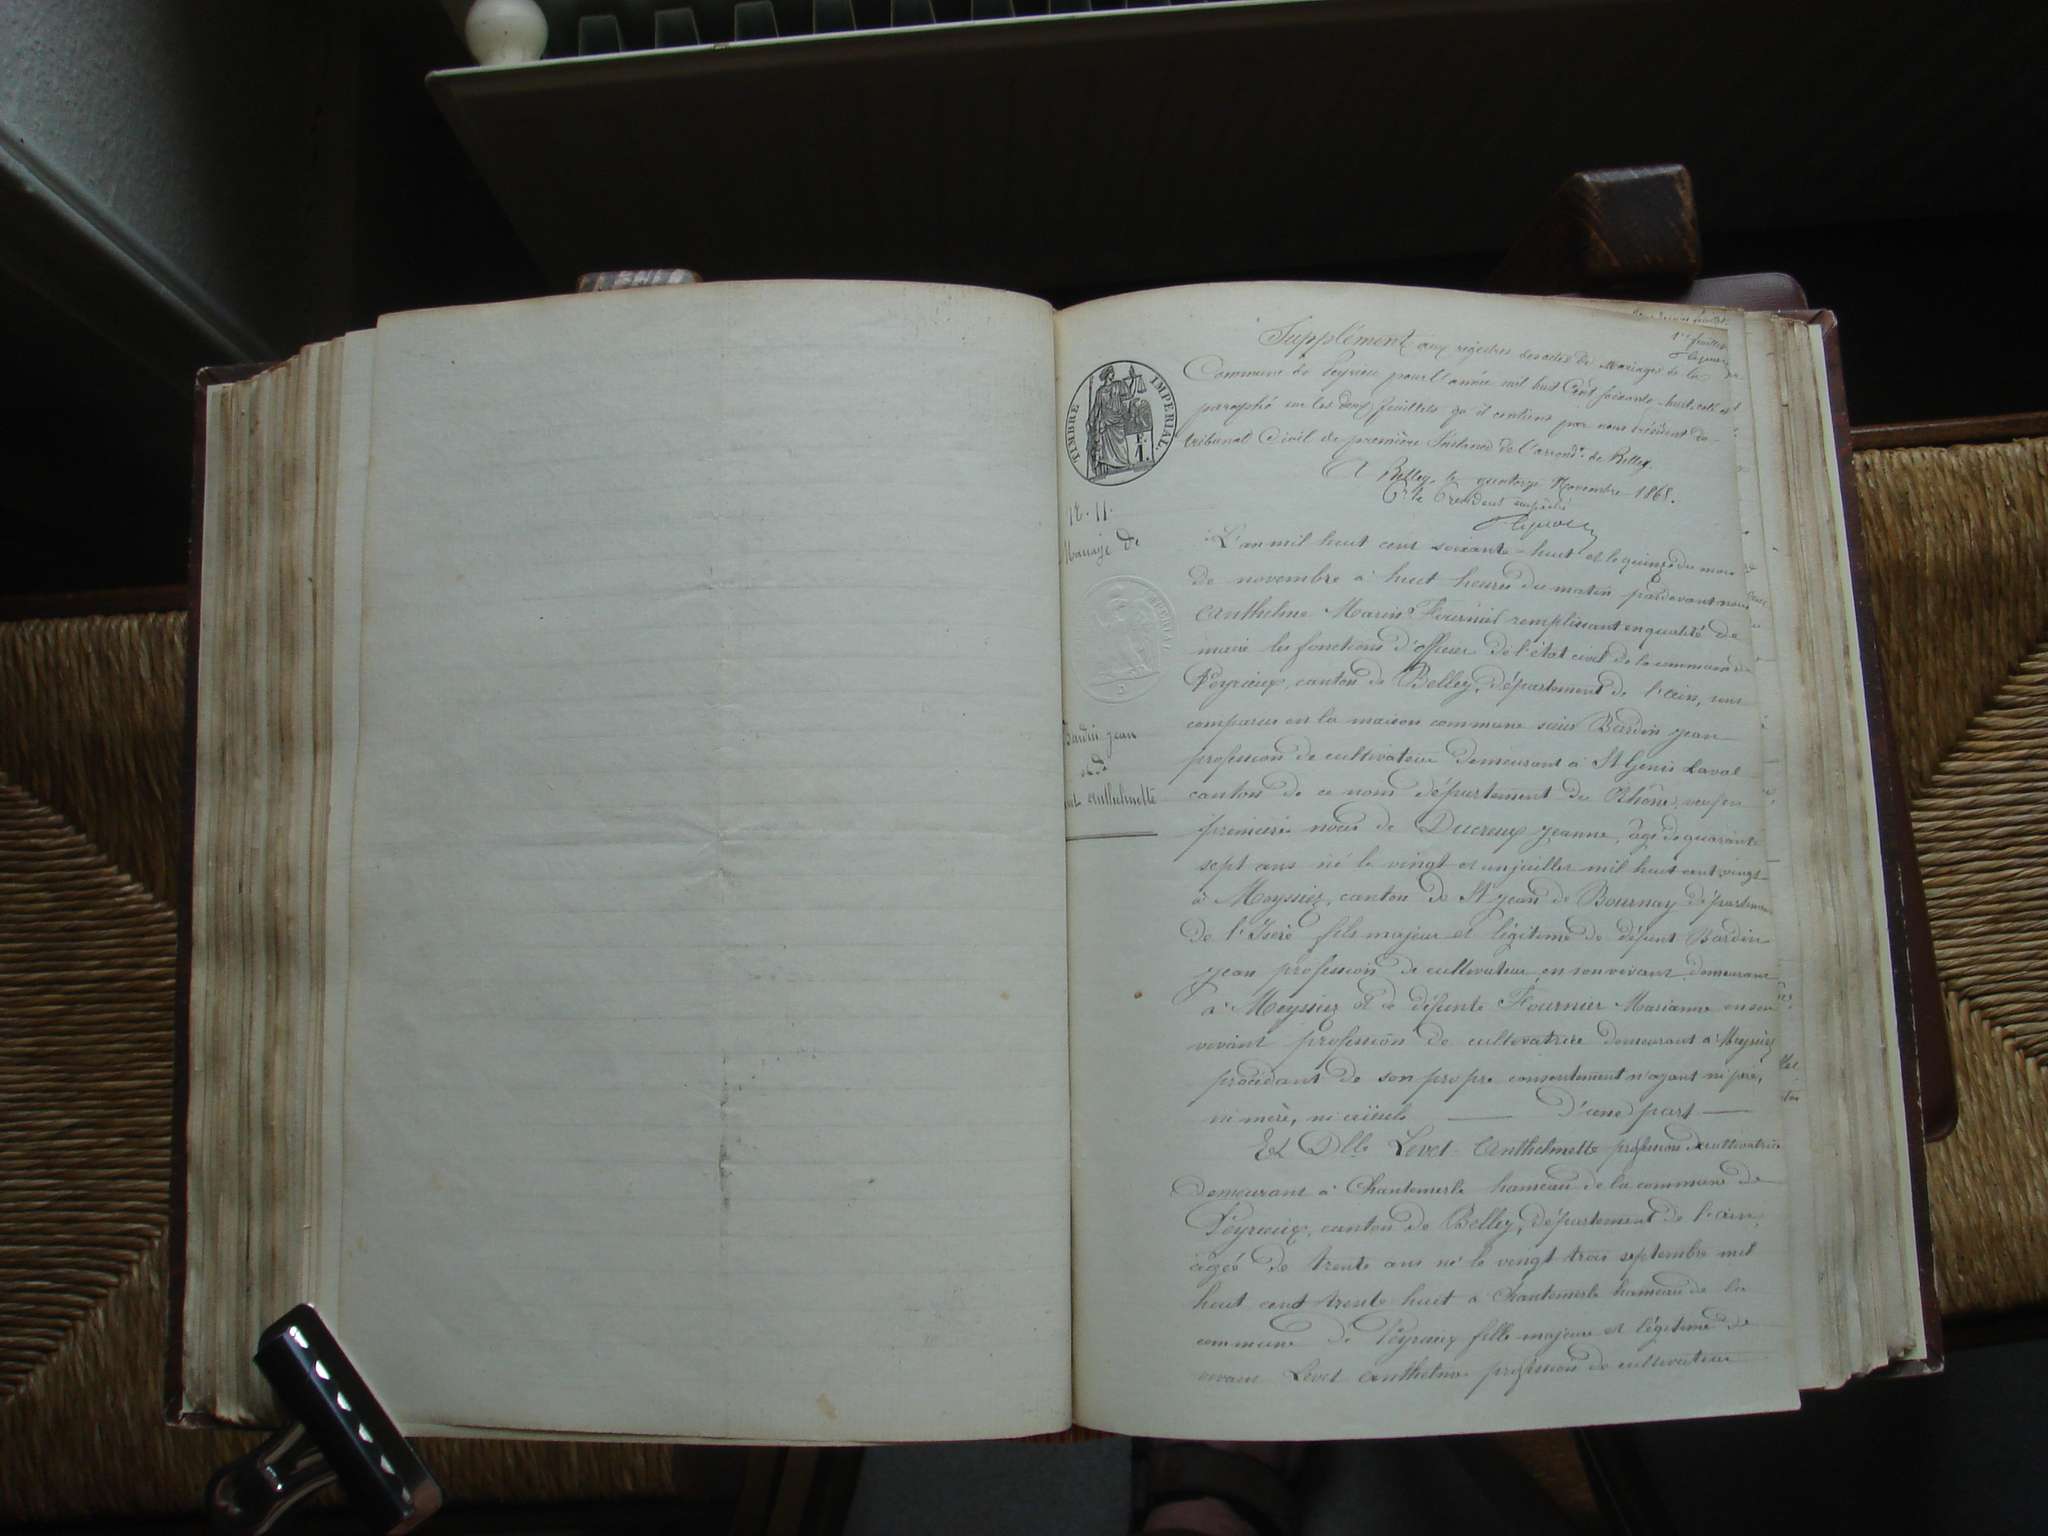 1er feuillet
Supplément aux registres des actes de Mariages de la
Commune de Peyrieu pour l'année mil huit Cent soixante-huit coté et
paraphé sur les deux feuillets qu'il contient par nous Président du
tribunal Civil de première Instance de l'arrondt de Belley.
A Belley le quatorze Novembre 1868.
Pr le Président empêché
TIMBRE IMPERIAL.
F.
1.
12. 11.
Mariage de
Bardin jean
et
Anthelmette
L'an mil huit cent soixante-huit et le quinze du mois
de novembre à huit heures du matin pardevant nous
Anthelme Marin Fournial remplissant en qualité de
maire les fonctions d'officier de l'état civil de la commune de
Peyrieux, canton de Belley, département de l'ain, sont
comparus en la maison commune sieur Bardin jean
profession de cultivateur demeurant à St Genis Laval
canton de ce nom département du Rhône, veuf en
premieres noces de Ducreux jeanne, âgé de quarante
sept ans né le vingt et un juillet mil huit cent vingt
à Meyssiez, canton de St jean de Bournay département
de l'Isère fils majeur et légitime de défunt Bardin
jean profession de cultivateur en son vivant demeurant
à Meyssiez et de défunte Fournier Marianne en son
vivant profession de cultivatrice demeurant à Meyssiez
procédant de son propre consentement n'ayant ni père,
ni mère, ni aïeuls — d'une part —
Et Dlle Levet Anthelmette profession de cultivatrice
demeurant à Chantemerle hameau de la commune de
Peyrieux, canton de Belley, département de l'ain,
agée de trente ans né le vingt trois septembre mil
huit cent trente huit à Chantemerle hameau de la
commune de Peyrieux fille majeure et légitime de
vivant Levet anthelme profession de cultivateur